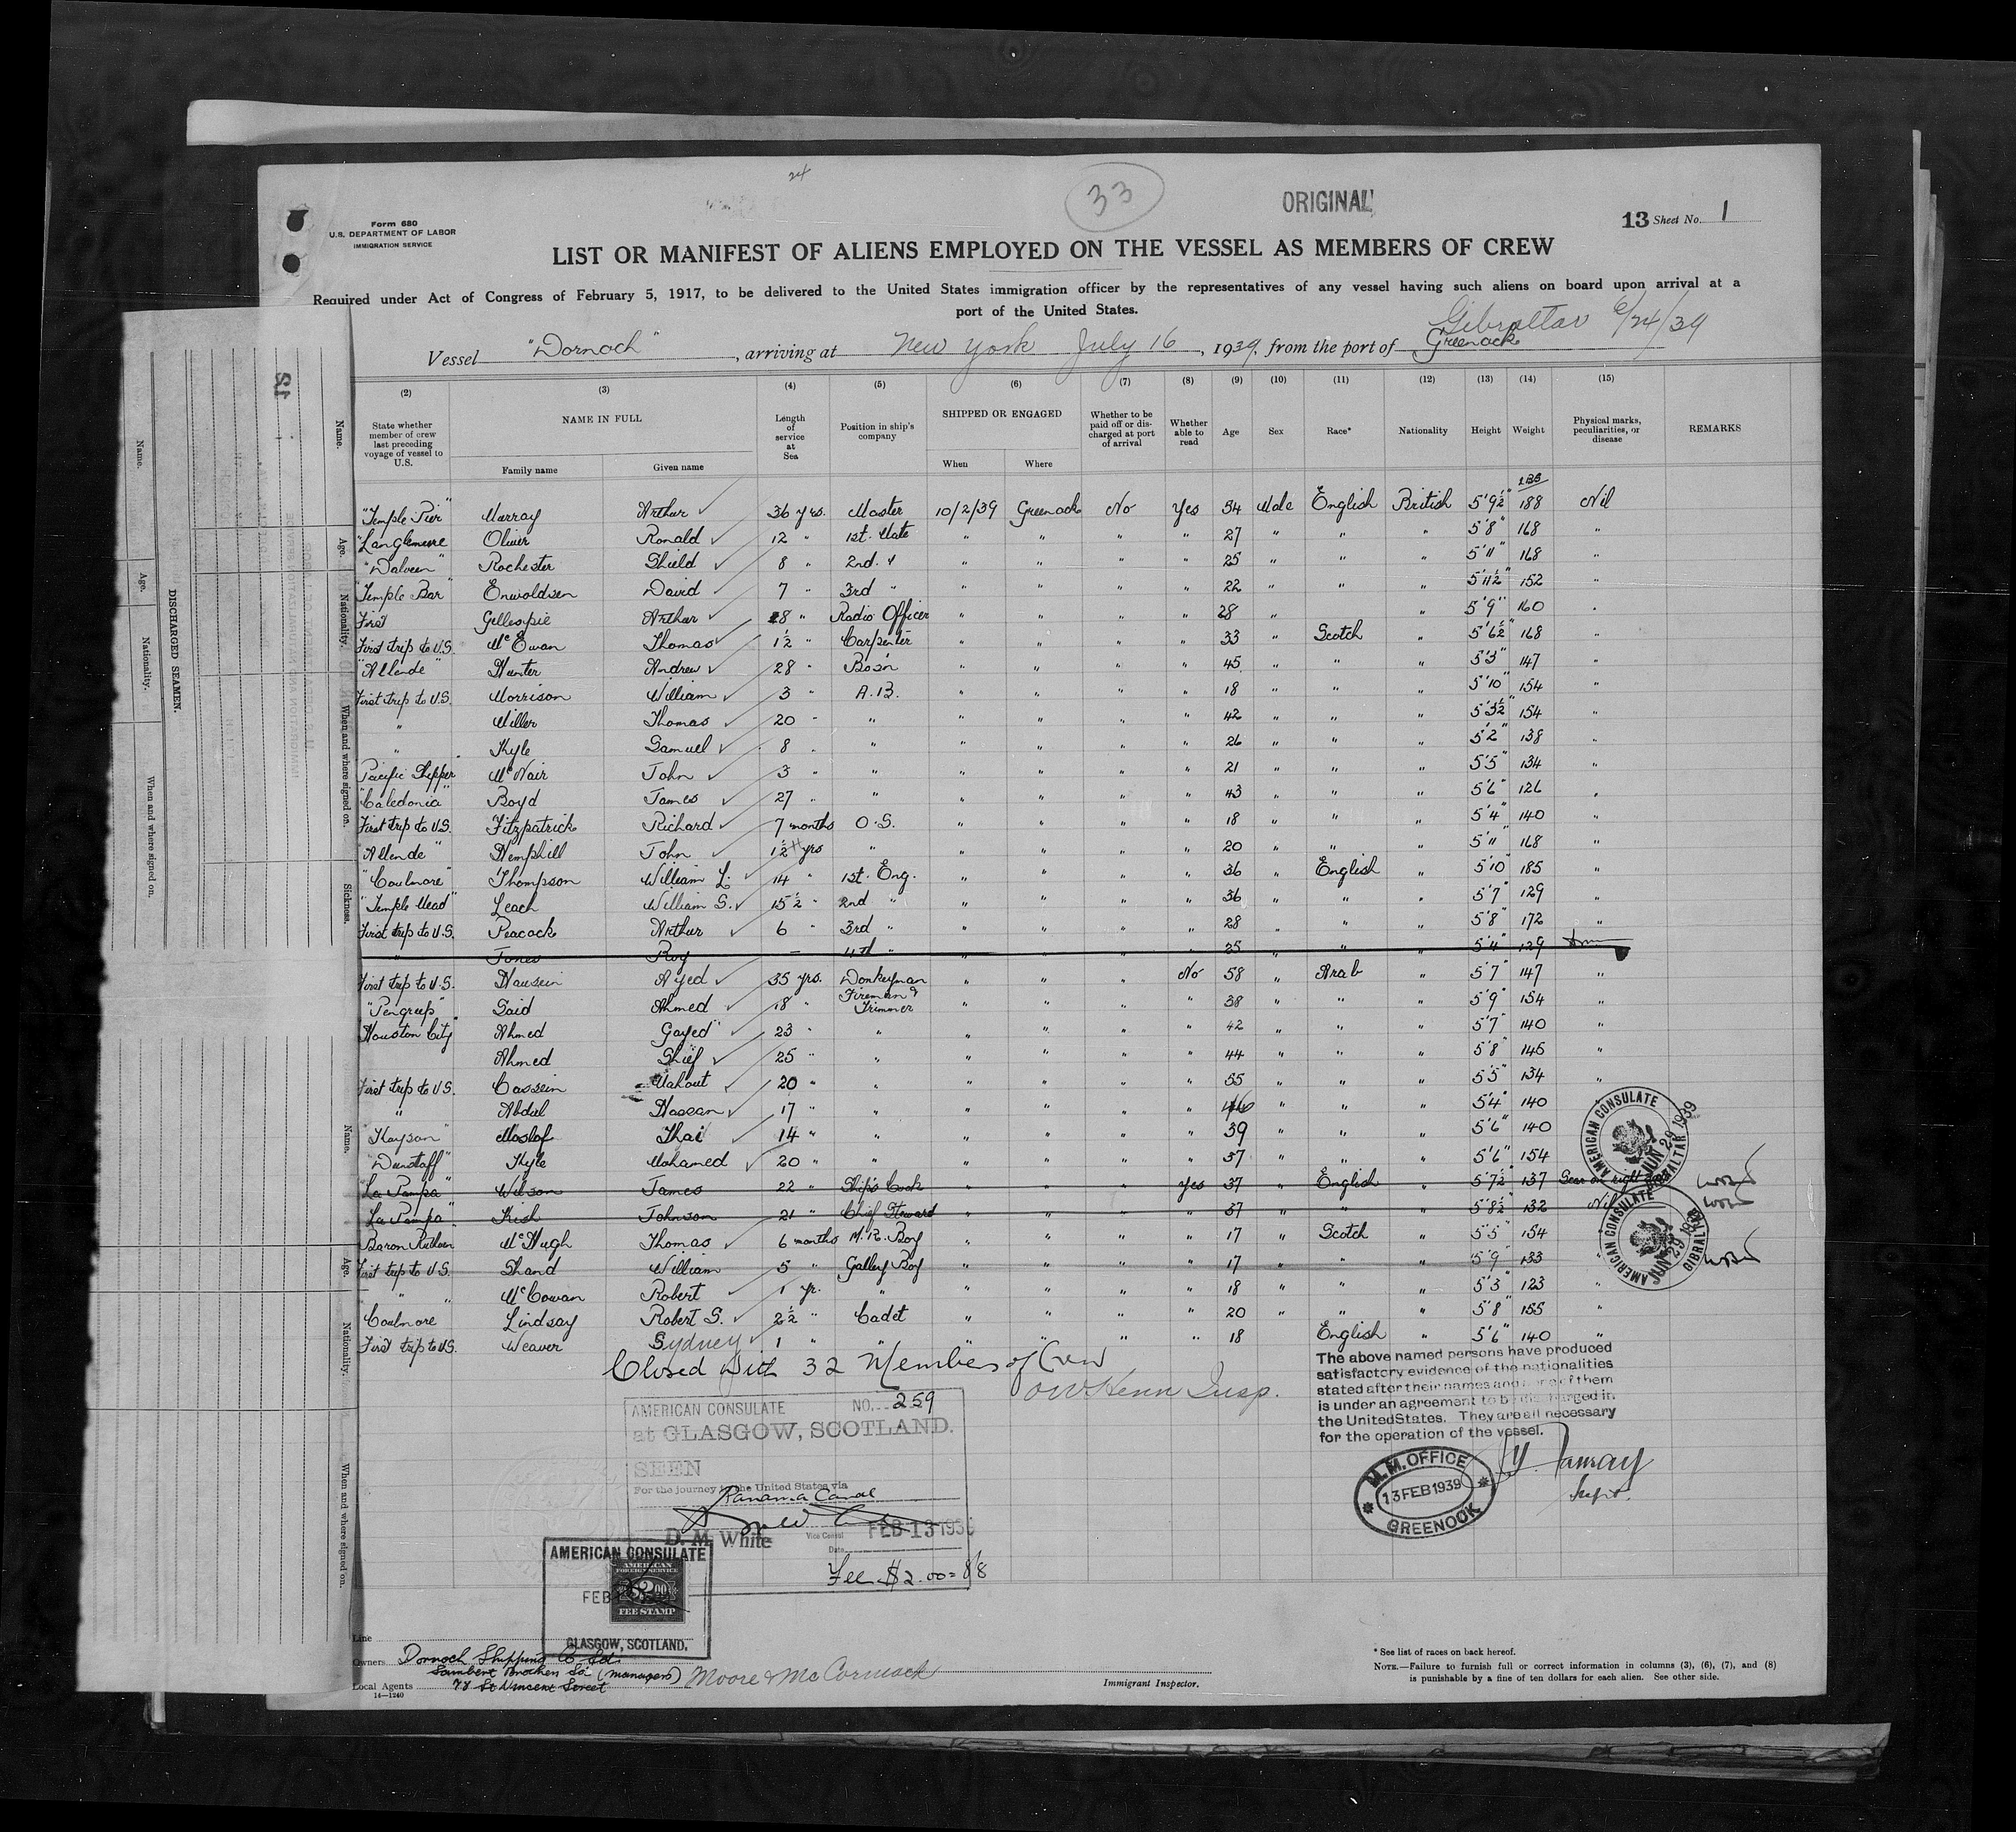 24
33
ORIGINAL
13 Sheet No. 1
Form 680
U.S. DEPARTMENT OF LABOR
IMMIGRATION SERVICE
LIST OR MANIFEST OF ALIENS EMPLOYED ON THE VESSEL AS MEMBERS OF CREW
Required under Act of Congress of February 5, 1917, to be delivered to the United States immigration officer by the representatives of any vessel having such aliens on board upon arrival at a
port of the United States.
Gibraltar 6/24/39
Vessel "Dornoch", arriving at New York July 16, 1939, from the port of Greenock
(2) (3) (4) (5) (6) (7) (8) (9) (10) (11) (12) (13) (14) (15)
State whether member of crew last preceding voyage of vessel to U.S. NAME IN FULL Family name Given name Length of service at Sea Position in ship's company SHIPPED OR ENGAGED When Where Whether to be paid off or discharged at port of arrival Whether able to read Age Sex Race* Nationality Height Weight Physical marks, peculiarities, or disease REMARKS
LBS
"Temple Pier" Murray Arthur 36 yrs. Master 10/2/39 Greenock No Yes 54 Male English British 5'9½" 188 Nil
Oliver Ronald 12 " 1st. Mate " " " " 27 " " " 5'8" 168 "
"Dalveen" Rochester Shield 8 " 2nd. " " " " " 25 " " " 5'11" 168 "
"Temple Bar" Enwoldsen David 7 " 3rd " " " " " 22 " " " 5'11½" 152 "
First Gellespie Arthur 8 " Radio Officer " " " " 28 " " 5'9" 160 "
First trip to U.S. McEwan Thomas 1½ " Carpenter " " " " 33 " Scotch " 5'6½" 168 "
"Allende" Hunter Andrew 28 " Bosn " " " " 45 " " " 5'3" 147 "
First trip to U.S. Morrison William 3 " A.B. " " " " 18 " " " 5'10" 154 "
" Miller Thomas 20 " " " " " " 42 " " " 5'3½" 154 "
" Kyle Samuel 8 " " " " " " 26 " " " 5'2" 138 "
Pacific Shipper McNair John 3 " " " " " " 21 " " " 5'5" 134 "
"Caledonia" Boyd James 27 " " " " " " 43 " " " 5'6" 126 "
First trip to U.S. Fitzpatrick Richard 7 months O.S. " " " " 18 " " " 5'4" 140 "
"Allende" Hemphill John 1½ yrs " " " " " 20 " " " 5'11" 168 "
"Coulmore" Thompson William L. 14 " 1st. Eng. " " " " 36 " English " 5'10" 185 "
"Temple Mead" Leach William S. 15½ " 2nd " " " " " 36 " " " 5'7" 129 "
First trip to U.S. Peacock Arthur 6 " 3rd " " " " " 28 " " " 5'8" 172 "
" Jones Roy - 4th " " " " " 25 " " " 5'4" 129
First trip to U.S. Hausein Ayed 35 yrs. Donkeyman " " " No 58 " Arab " 5'7" 147 "
"Pengreep" Said Ahmed 18 " Fireman & Trimmer " " " " 38 " " " 5'9" 154 "
"Houston City" Ahmed Gayed 23 " " " " " " 42 " " " 5'7" 140 "
Ahmed Shief 25 " " " " " " 44 " " " 5'8" 145 "
First trip to U.S. Cassein Mahout 20 " " " " " " 55 " " " 5'5" 134 "
" Abdul Hassan 17 " " " " " " 46 " " " 5'4" 140
"Kayson" Moslof Thai 14 " " " " " " 39 " " " 5'6" 140
"Dunstaff" Kyle Mohamed 20 " " " " " " 37 " " " 5'6" 154
"La Pampa" Wilson James 22 " Ship's Cook " " " Yes 37 " English " 5'7½" 137 Scar on right
"La Pampa" Kish Johnson 21 " Chief Steward " " " " 37 " " " 5'8½" 132 Nil
Baron Ruthven McHugh Thomas 6 months M.R. Boy " " " " 17 " Scotch " 5'5" 154
First trip to U.S. Shand William 5 " Galley Boy " " " " 17 " " " 5'9" 133
" " McCowan Robert 1 yr. " " " " " 18 " " " 5'3" 123 "
Coulmore Lindsay Robert S. 2½ " Cadet " " " " 20 " " " 5'8" 155 "
First trip to U.S. Weaver Sydney 1 " " " " " " 18 English " 5'6" 140 "
Closed with 32 Members of Crew
Insp.
AMERICAN CONSULATE
JUN 29 1939
GIBRALTAR
AMERICAN CONSULATE
JUN 29 1939
GIBRALTAR
The above named persons have produced
satisfactory evidence of the nationalities
stated after their names and none of them
is under an agreement to be discharged in
the United States. They are all necessary
for the operation of the vessel.
M.M. OFFICE
13 FEB 1939
GREENOCK
Supt.
AMERICAN CONSULATE NO. 259
at GLASGOW, SCOTLAND.
SEEN
For the journey to the United States via
Panama Canal
D. M. White Vice Consul FEB 13 1939
Date
Fee $2.00 = 8/8
AMERICAN CONSULATE
AMERICAN
FOREIGN SERVICE
$2.00
FEB
FEE STAMP
GLASGOW, SCOTLAND.
Line
Owners Dornoch Shipping Co Ld.
Lambert Brothers Ld (managers)
Local Agents 78 St Vincent Street Moore & McCormack
14—1240
Immigrant Inspector.
* See list of races on back hereof.
NOTE.—Failure to furnish full or correct information in columns (3), (6), (7), and (8)
is punishable by a fine of ten dollars for each alien. See other side.
DISCHARGED SEAMEN.
Name.
Age.
Nationality.
When and where signed on.
Name.
Age.
Nationality.
When and where signed on.
Sickness.
Name.
Age.
Nationality.
When and where signed on.